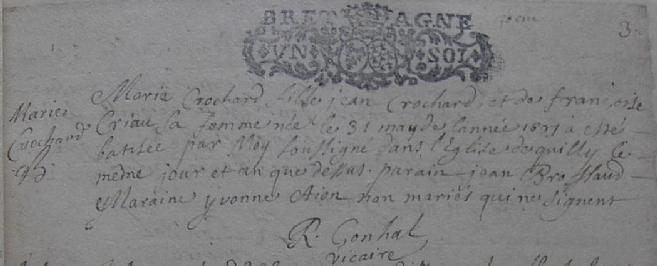 BRETAGNE
VN SOL
3
Marie Crochard fille jean Crochard et de francoise
Marie
Crochard
Criau sa femme née le 31 may de lannée a esté
batisée par Moy soussigné dans l'Eglise de quilly le
mesme jour et an que dessus. parain jean Brossaud
Maraine yvonne Aion non mariés qui ne signent
R. Gonhal
vicaire